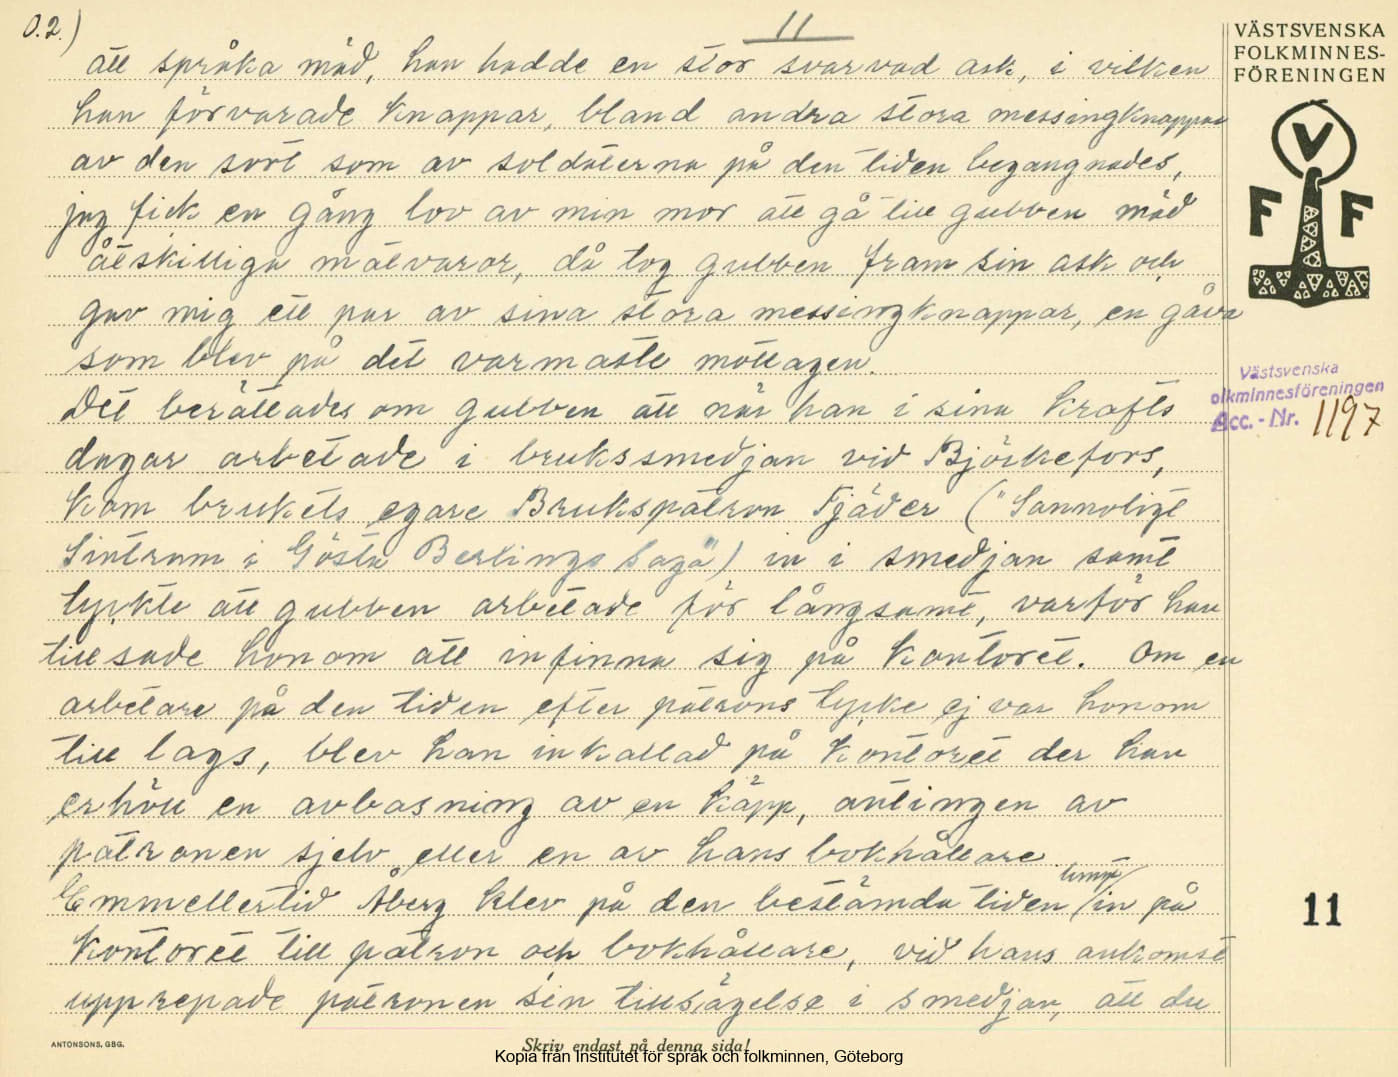 O.2.)
11
VÄSTSVENSKA
FOLKMINNES-
FÖRENINGEN
att språka mäd, han hadde en stor svarvad ask, i vilken
han förvarade knappar, bland andra stora messingknappar
av den sort som av soldaterna på den tiden begangnades,
jag fick en gång lov av min mor att gå till gubben mäd
åtskilliga matvaror, då tog gubben fram sin ask och
gav mig ett par av sina stora messingknappar, en gåva
som blev på det varmaste mottagen.
Det berättades om gubben att när han i sina krafts
dagar arbetade i brukssmedjan vid Björkefors,
kom brukets egare Brukspatron Fjäder ("Sannoligt
Sintram i Gösta Berlings Saga") in i smedjan samt
tyckte att gubben arbetade för långsamt, varför han
tillsade honom att infinna sig på kontoret. Om en
arbetare på den tiden efter patrons tycke ej var honom
till lags, blev han inkallad på kontoret der han
erhöll en avbasning av en käpp, antingen av
patronen sjelv eller en av hans bokhållare.
Emmellertid Åberg klev på den bestämda tiden in på
kontoret till patron och bokhållare, vid hans ankomst
upprepade patronen sin tillsägelse i smedjan, att du
V
F F
Västsvenska
olkminnesföreningen
Acc.-Nr. 1197
11
ANTONSONS, GBG.
Skriv endast på denna sida!
Kopia från Institutet för språk och folkminnen, Göteborg